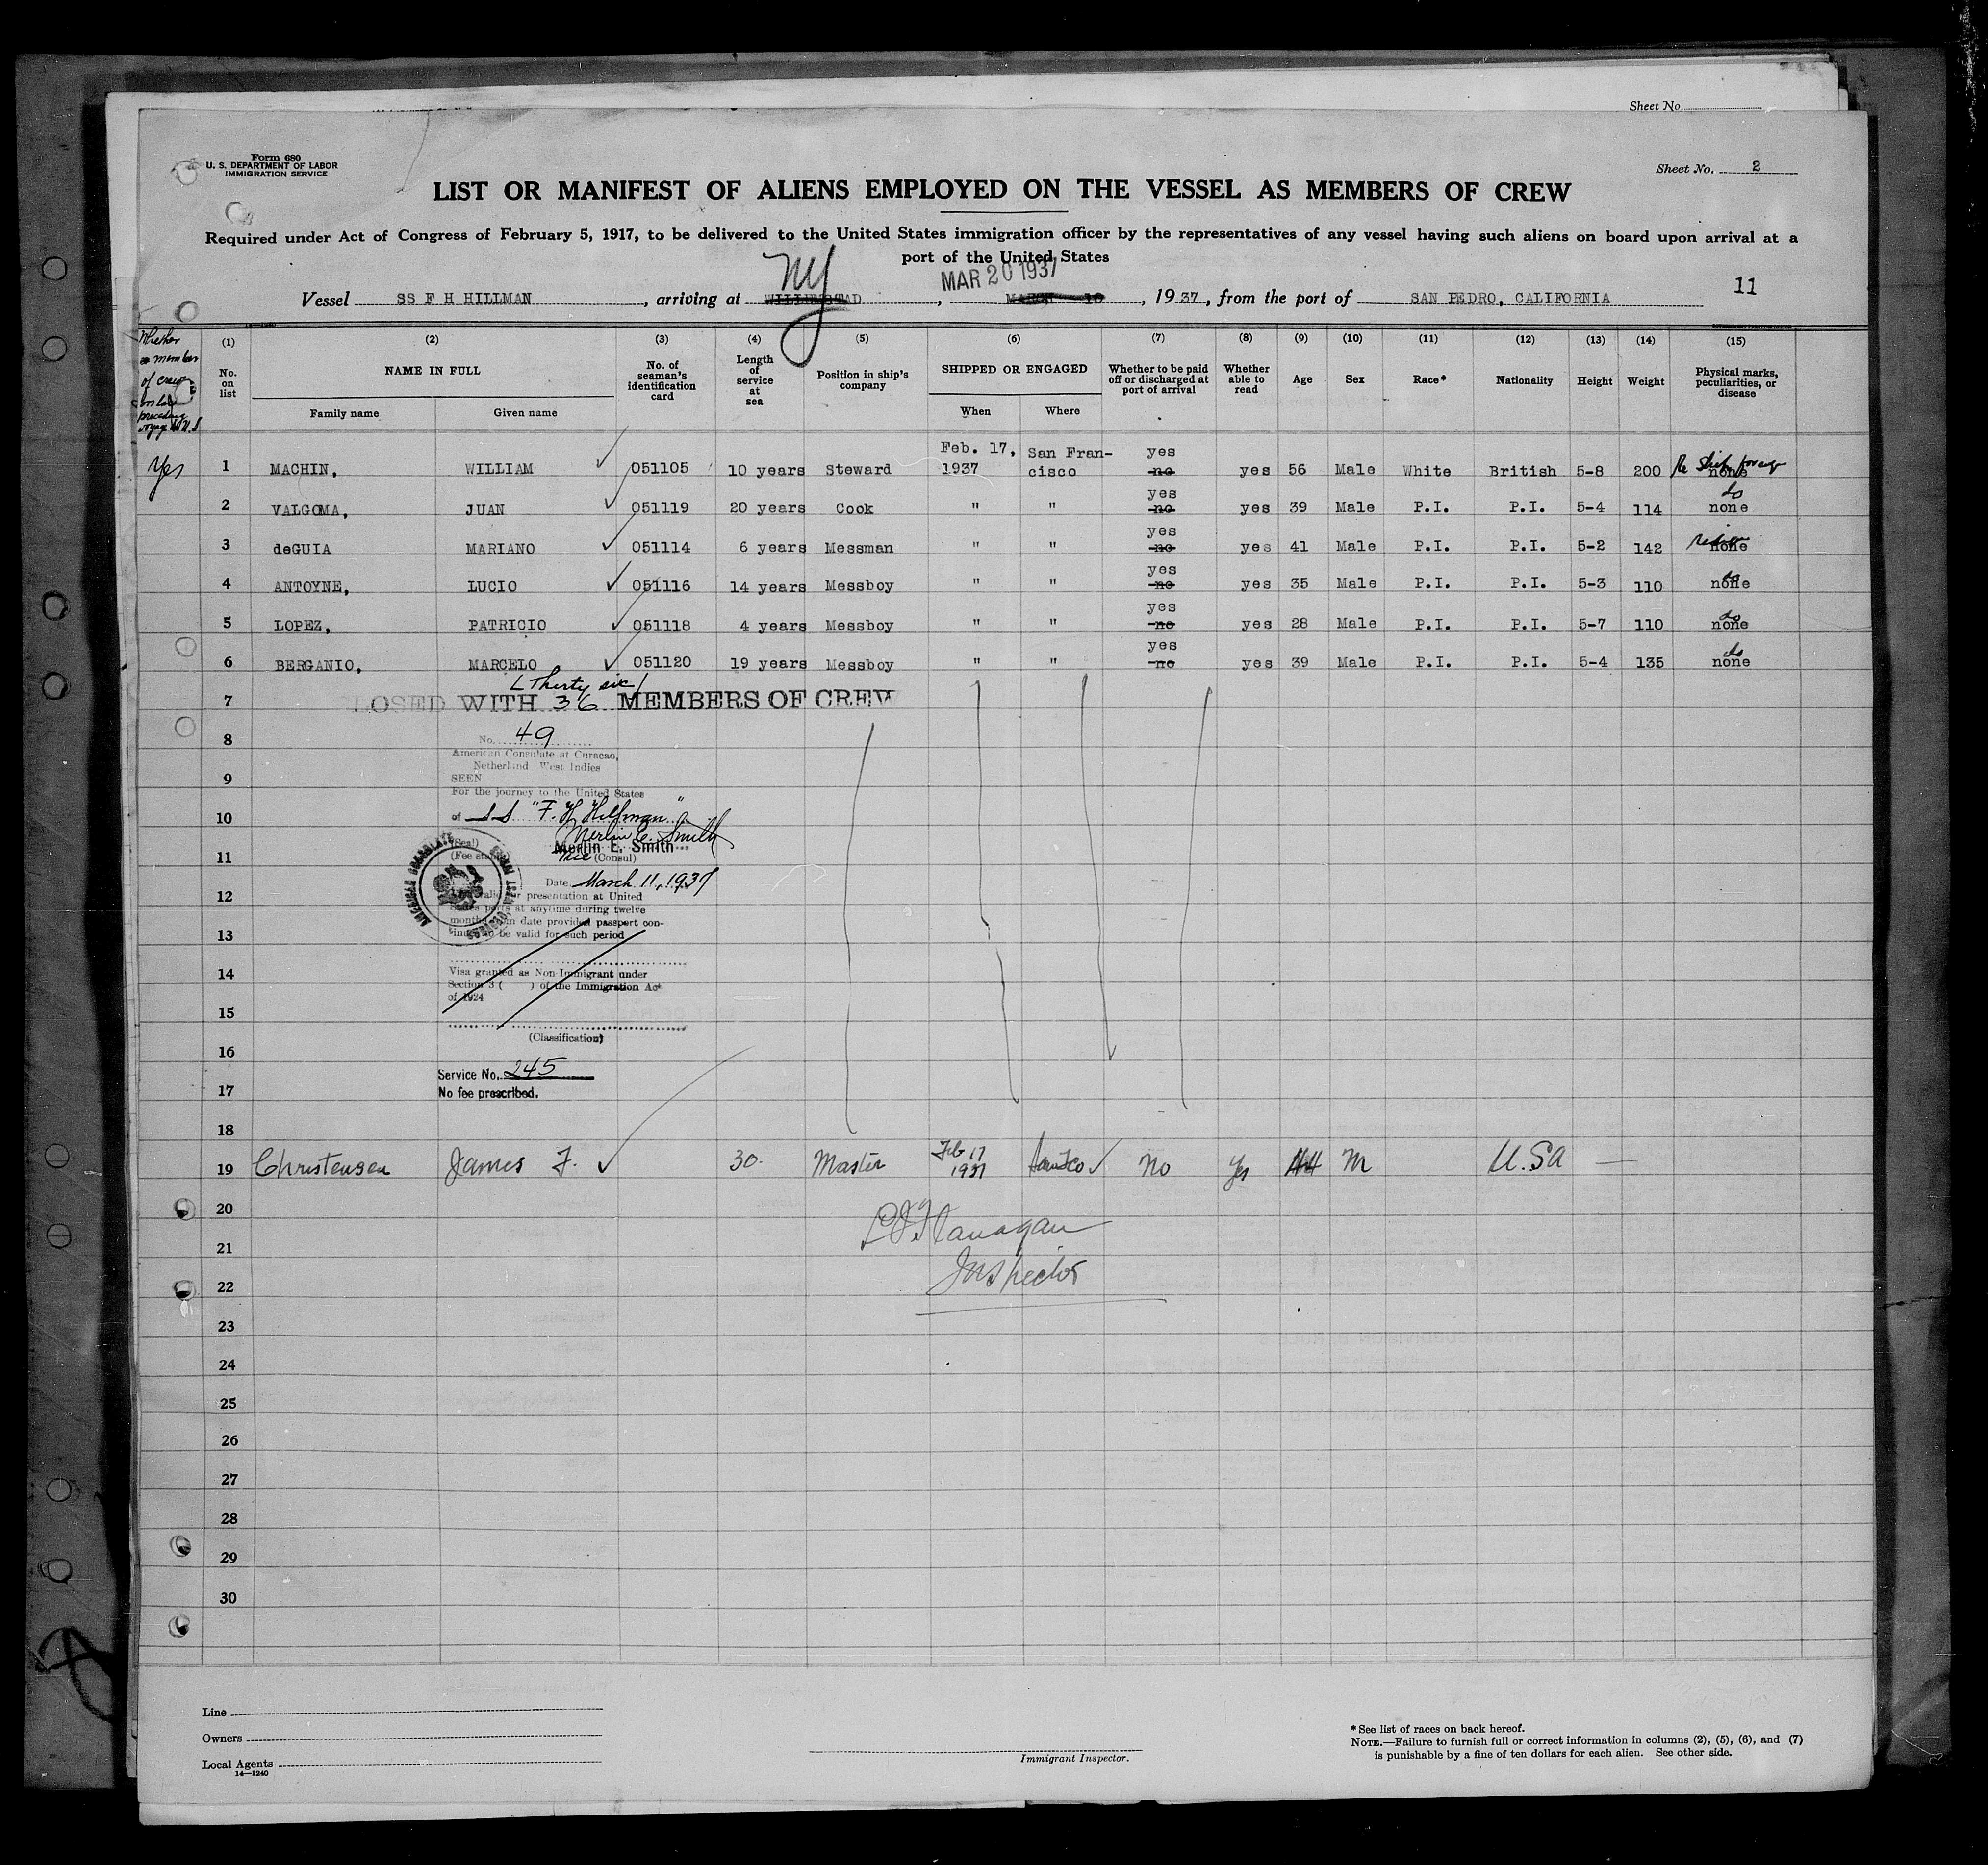 Sheet No.
Form 680
U. S. DEPARTMENT OF LABOR
IMMIGRATION SERVICE
Sheet No. 2
LIST OR MANIFEST OF ALIENS EMPLOYED ON THE VESSEL AS MEMBERS OF CREW
Required under Act of Congress of February 5, 1917, to be delivered to the United States immigration officer by the representatives of any vessel having such aliens on board upon arrival at a
port of the United States
NY MAR 20 1937
Vessel SS F H HILLMAN, arriving at WILLEMSTAD, MARCH 10, 1937, from the port of SAN PEDRO, CALIFORNIA 11
Whether a member of crew on last preceding voyage to U.S.
(1) (2) (3) (4) (5) (6) (7) (8) (9) (10) (11) (12) (13) (14) (15)
No. on list NAME IN FULL No. of seaman's identification card Length of service at sea Position in ship's company SHIPPED OR ENGAGED Whether to be paid off or discharged at port of arrival Whether able to read Age Sex Race* Nationality Height Weight Physical marks, peculiarities, or disease
Family name Given name When Where
Yes 1 MACHIN, WILLIAM 051105 10 years Steward Feb. 17, 1937 San Francisco yes no yes 56 Male White British 5-8 200 Re Ship foreign none
2 VALGOMA, JUAN 051119 20 years Cook " " yes no yes 39 Male P.I. P.I. 5-4 114 do none
3 deGUIA MARIANO 051114 6 years Messman " " yes no yes 41 Male P.I. P.I. 5-2 142 none
4 ANTOYNE, LUCIO 051116 14 years Messboy " " yes no yes 35 Male P.I. P.I. 5-3 110 do none
5 LOPEZ, PATRICIO 051118 4 years Messboy " " yes no yes 28 Male P.I. P.I. 5-7 110 do none
6 BERGANIO, MARCELO 051120 19 years Messboy " " yes no yes 39 Male P.I. P.I. 5-4 135 do none
Thirty six
7 LOSED WITH 36 MEMBERS OF CREW
8 No. 49
American Consulate at Curacao,
Netherland West Indies
9 SEEN
For the journey to the United States
10 of SS "F. H. Hillman"
Merlin E. Smith
(Seal) Merlin E. Smith
11 (Fee stamp) Vice (Consul)
Date March 11, 1937
12 Valid for presentation at United
States ports at anytime during twelve
months from date provided passport con-
13 tinues to be valid for such period
14 Visa granted as Non Immigrant under
Section 3 ( ) of the Immigration Act
of 1924
15
(Classification)
16
Service No. 245
17 No fee prescribed.
18
19 Christensen James F. 30. Master Feb 17 1937 SanFco No Yes 44 M U.S.A —
20
21 Flanagan
22 Inspector
23
24
25
26
27
28
29
30
Line
Owners
Local Agents
14—1240
Immigrant Inspector.
* See list of races on back hereof.
NOTE.—Failure to furnish full or correct information in columns (2), (5), (6), and (7)
is punishable by a fine of ten dollars for each alien. See other side.